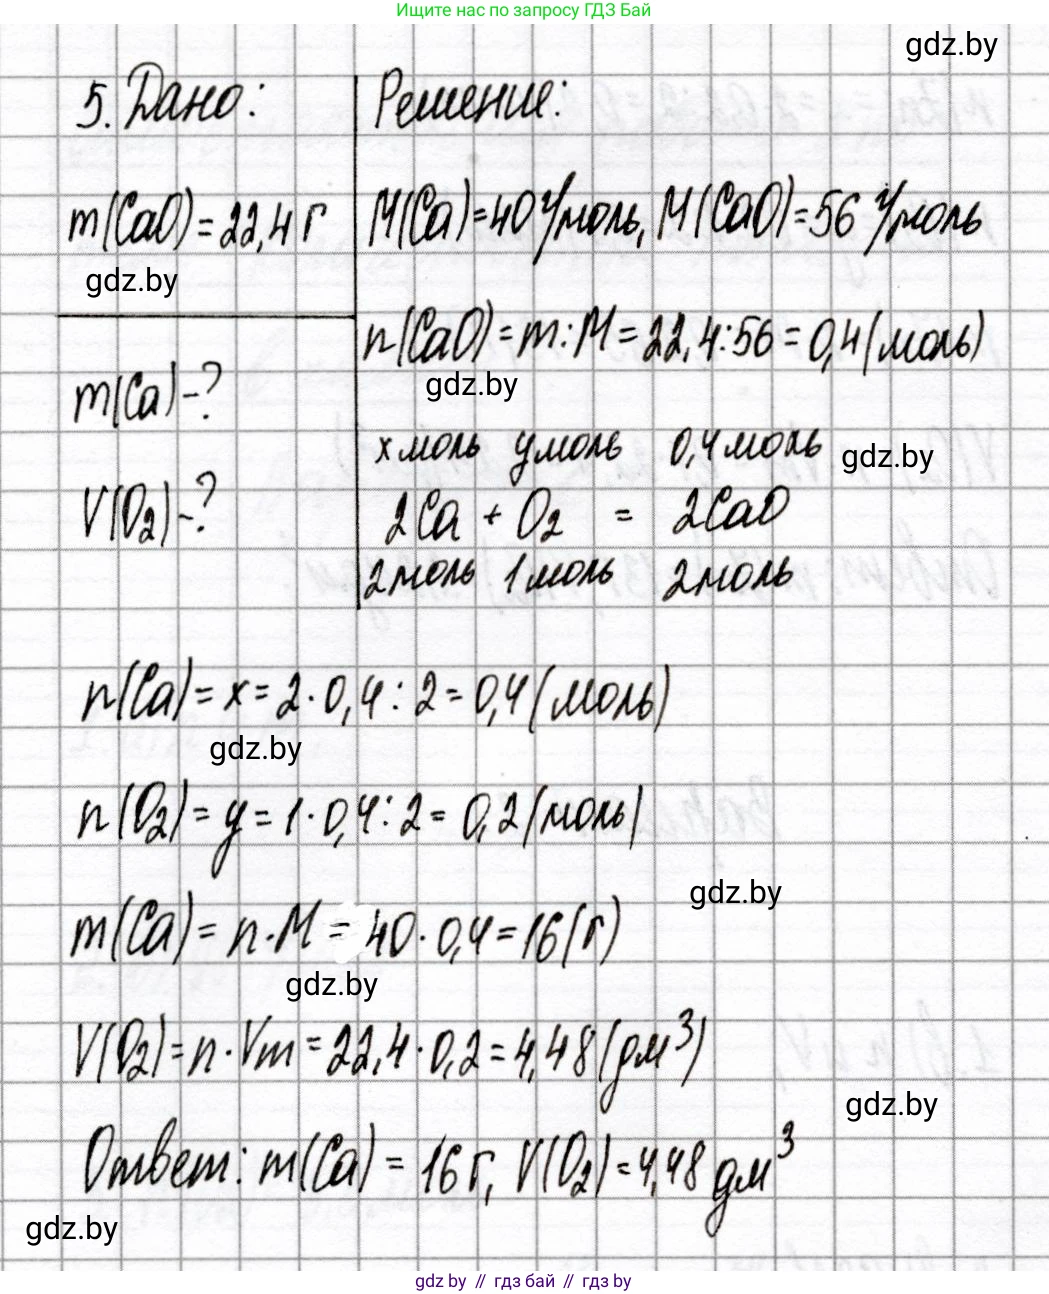 Ищите нас по запросу ГДЗ Бай
gdz.by
5. Дано:
Решение:
m(CaO) = 22,4 г
M(Ca) = 40 г/моль, M(CaO) = 56 г/моль
gdz.by
n(CaO) = m : M = 22,4 : 56 = 0,4 (моль)
gdz.by
m(Ca) - ?
x моль y моль 0,4 моль
gdz.by
V(O₂) - ?
2Ca + O₂ = 2CaO
2 моль 1 моль 2 моль
n(Ca) = x = 2 · 0,4 : 2 = 0,4 (моль)
gdz.by
n(O₂) = y = 1 · 0,4 : 2 = 0,2 (моль)
gdz.by
m(Ca) = n · M = 40 · 0,4 = 16 (г)
gdz.by
V(O₂) = n · Vm = 22,4 · 0,2 = 4,48 (дм³)
gdz.by
Ответ: m(Ca) = 16 г, V(O₂) = 4,48 дм³
gdz.by
gdz by // гдз бай // гдз by